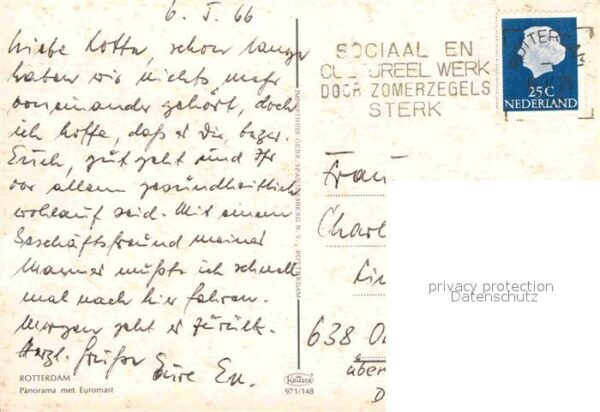 6. I. 66
Liebe Lotte, schon lange
haben wir nichts mehr
voneinander gehört, doch
ich hoffe, daß es Dir, bezw.
Euch, gut geht und Ihr
vor allem gesundheitlich
wohlauf seid. Mit einem
Geschäftsfreund meines
Mannes mußte ich schnell
mal nach hier fahren.
Morgen geht es zurück.
Herzl. Grüße
Eure
ROTTERDAM
Panorama met Euromast
IMPORTHUIS GEBR. SPANJERSBERG N.V., ROTTERDAM
971/148
SOCIAAL EN
CULTUREEL WERK
DOOR ZOMERZEGELS
STERK
25 C
NEDERLAND
Frau
Charl
638
über
privacy protection
Datenschutz